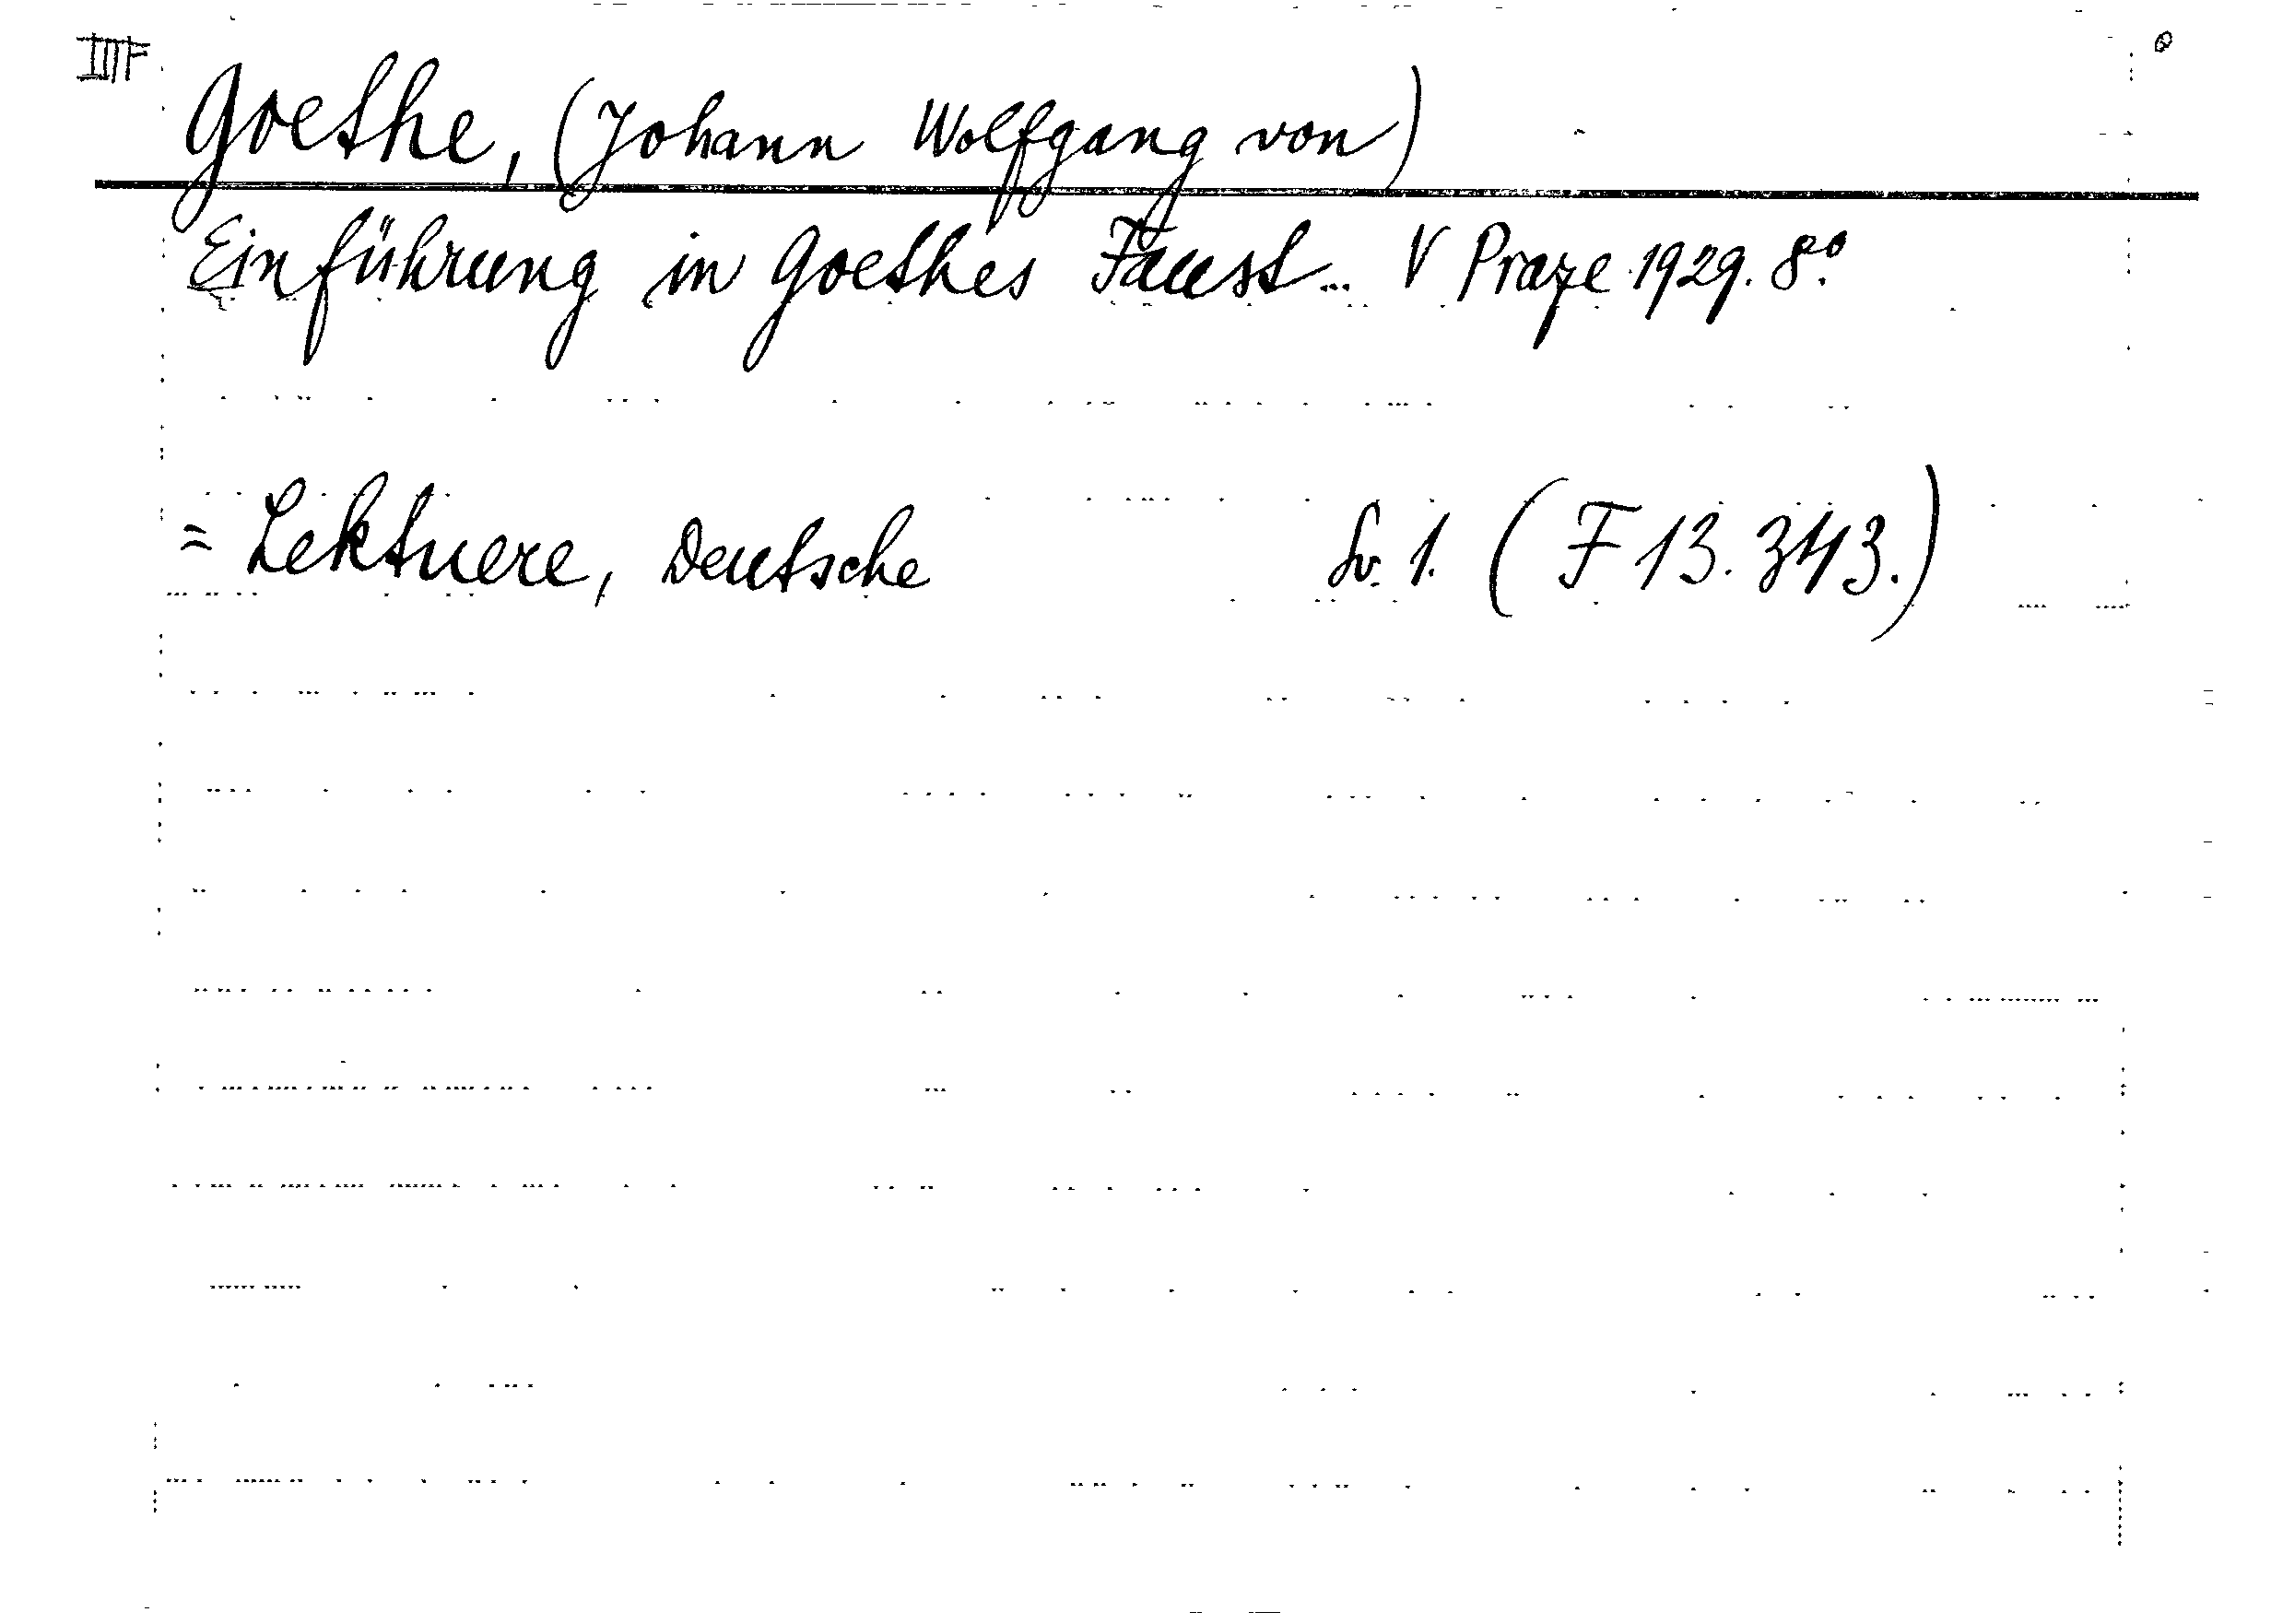 III F
Goethe, (Johann Wolfgang von)
Einführung in Goethes Faust... V Praze 1929. 8°.
= Lektuere, Deutsche Sv. 1. (F 13.343.)